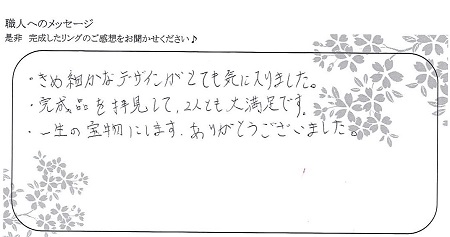 職人へのメッセージ
是非 完成したリングのご感想をお聞かせください♪
・きめ細かなデザインがとても気に入りました。
・完成品を拝見して、2人とも大満足です。
・一生の宝物にします。ありがとうございました。